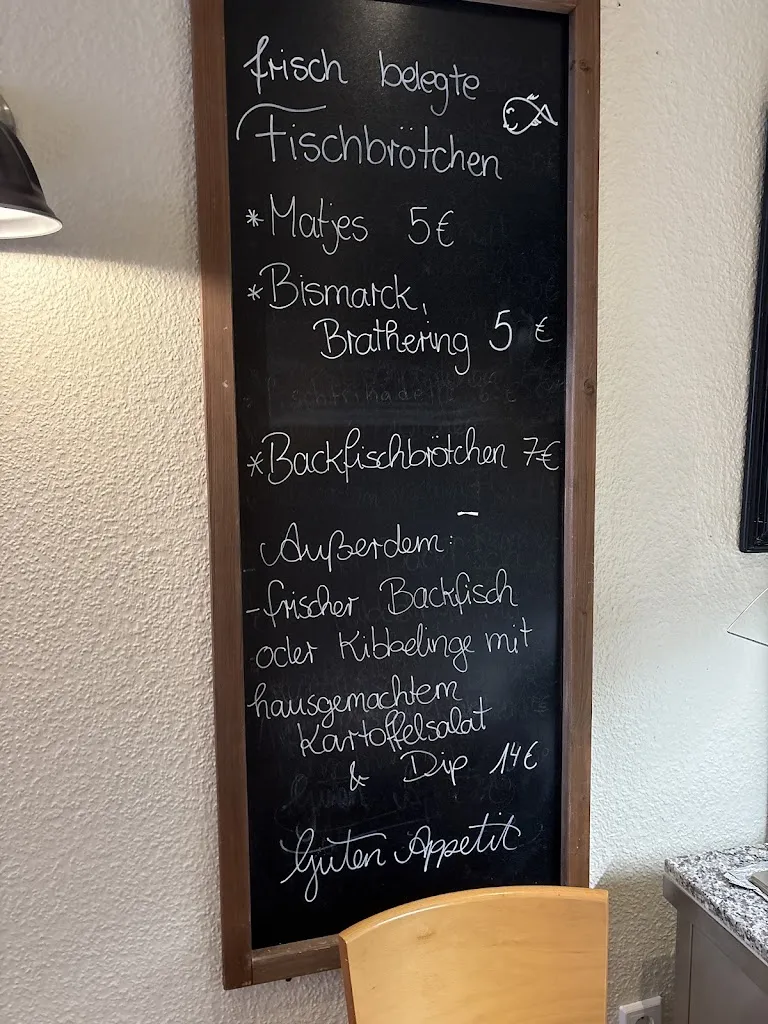 frisch belegte
Fischbrötchen
*Matjes 5€
*Bismarck,
Brathering 5 €
*Backfischbrötchen 7€
Außerdem:
-frischer Backfisch
oder Kibbelinge mit
hausgemachtem
Kartoffelsalat
& Dip 14€
Guten Appetit